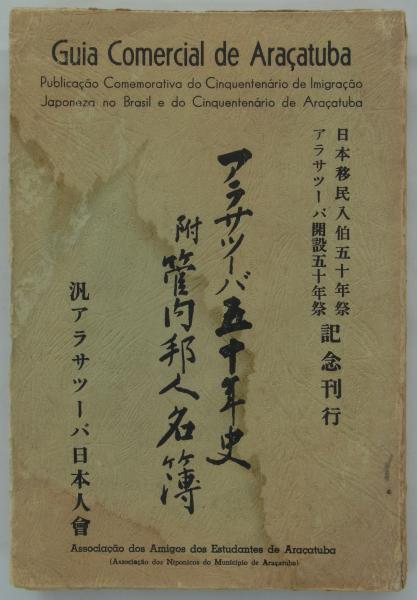 Guia Comercial de Araçatuba
Publicação Comemorativa do Cinquentenário de Imigração
Japoneza no Brasil e do Cinquentenário de Araçatuba
日本移民入伯五十年祭
アラサツーバ開設五十年祭
記念刊行
アラサツーバ五十年史
附 管内邦人名簿
汎アラサツーバ日本人會
Associação dos Amigos dos Estudantes de Araçatuba
(Associação dos Niponicos do Município de Araçatuba)